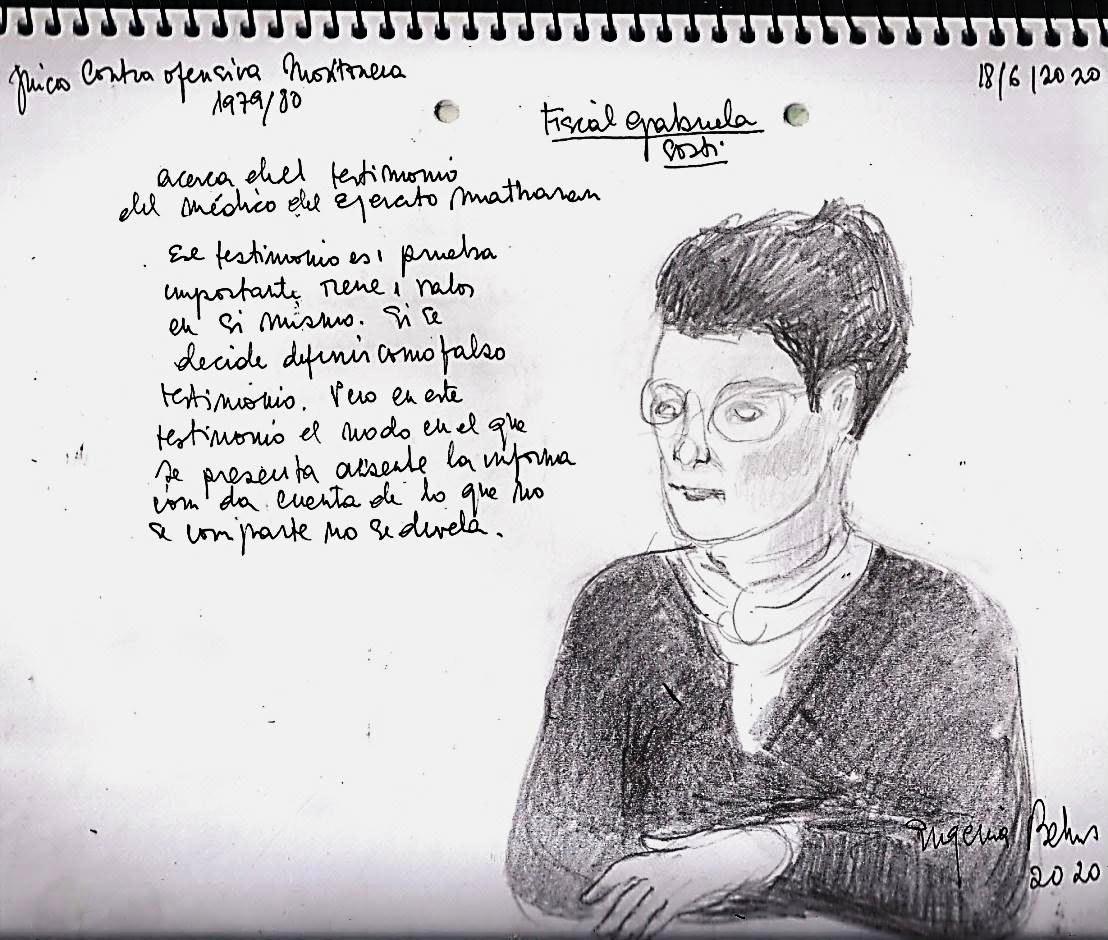 Juicio Contra ofensiva Montonera
1979/80
18/6/2020
Fiscal Gabriela
Sosti
acerca del testimonio
del médico del Ejercito Matharan
Ese testimonio es 1 prueba
importante, tiene 1 valor
en si mismo. Si se
decide definir como falso
testimonio. Pero en este
testimonio el modo en el que
se presenta ausente la informa
cion da cuenta de lo que no
se comparte no se devela.
Eugenia Bekeris
2020